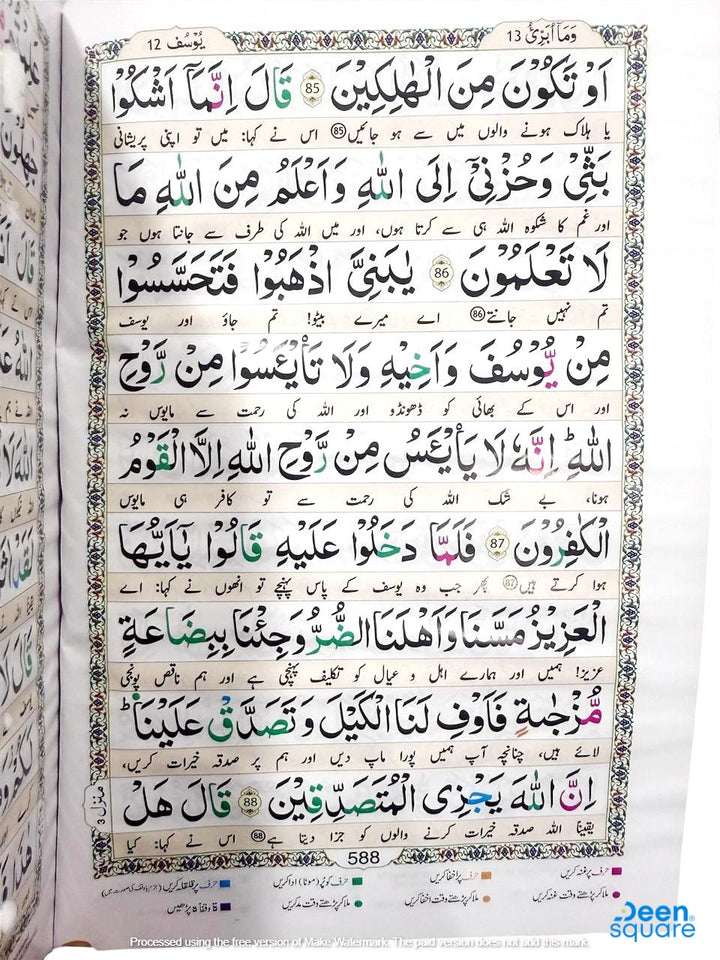 وَمَآ اُبَرِّئُ 13
يُوْسُف 12
اَوْ تَكُوْنَ مِنَ الْهٰلِكِيْنَ 85 قَالَ اِنَّمَآ اَشْكُوْا
یا ہلاک ہونے والوں میں سے ہو جائیں 85 اس نے کہا: میں تو اپنی پریشانی
بَثِّيْ وَحُزْنِيْٓ اِلَى اللّٰهِ وَاَعْلَمُ مِنَ اللّٰهِ مَا
اور غم کا شکوہ اللہ ہی سے کرتا ہوں، اور میں اللہ کی طرف سے جانتا ہوں جو
لَا تَعْلَمُوْنَ 86 يٰبَنِيَّ اذْهَبُوْا فَتَحَسَّسُوْا
تم نہیں جانتے 86 اے میرے بیٹو! تم جاؤ اور یوسف
مِنْ يُّوْسُفَ وَاَخِيْهِ وَلَا تَايْـَٔسُوْا مِنْ رَّوْحِ
اور اس کے بھائی کو ڈھونڈو اور اللہ کی رحمت سے مایوس نہ
اللّٰهِ ؕ اِنَّهٗ لَا يَايْـَٔسُ مِنْ رَّوْحِ اللّٰهِ اِلَّا الْقَوْمُ
ہونا، بے شک اللہ کی رحمت سے تو کافر ہی مایوس
الْكٰفِرُوْنَ 87 فَلَمَّا دَخَلُوْا عَلَيْهِ قَالُوْا يٰٓاَيُّهَا
ہوا کرتے ہیں 87 پھر جب وہ یوسف کے پاس پہنچے تو انھوں نے کہا: اے
الْعَزِيْزُ مَسَّنَا وَاَهْلَنَا الضُّرُّ وَجِئْنَا بِبِضَاعَةٍ
عزیز! ہمیں اور ہمارے اہل و عیال کو تکلیف پہنچی ہے اور ہم ناقص پونجی
مُّزْجٰىةٍ فَاَوْفِ لَنَا الْكَيْلَ وَتَصَدَّقْ عَلَيْنَا ؕ
لائے ہیں، چنانچہ آپ ہمیں پورا ماپ دیں اور ہم پر صدقہ خیرات کریں،
اِنَّ اللّٰهَ يَجْزِي الْمُتَصَدِّقِيْنَ 88 قَالَ هَلْ
یقیناً اللہ صدقہ خیرات کرنے والوں کو جزا دیتا ہے 88 اس نے کہا: کیا
منزل 3
588
حرف پر غنہ کریں
حرف پر اخفا کریں
حرف کو پُر (موٹا) ادا کریں
حرف پر قلقلہ کریں
ملا کر پڑھتے وقت غنہ کریں
ملا کر پڑھتے وقت اخفا کریں
ملا کر پڑھتے وقت مد کریں
Deen square
Processed using the free version of Make Watermark. The paid version does not add this mark.